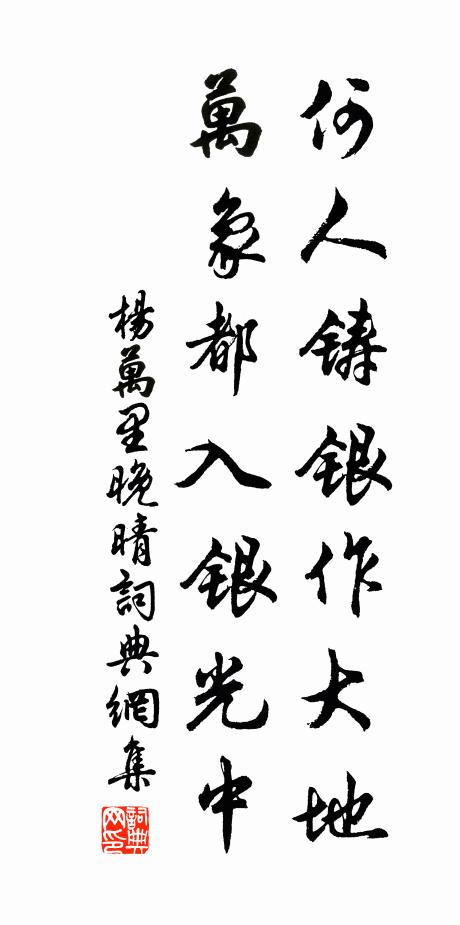 何人铸银作大地
萬象都入銀光中
楊萬里晚晴詞典網集
詞典
网印